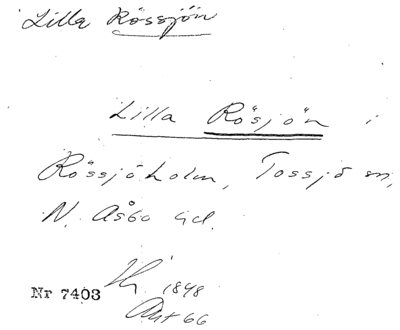 Lilla Rössjön
Lilla Rösjön i
Rössjöholm, Tossjö sn,
N. Åsbo hd.
Hi. 1848
Nr 7403
Akt 66